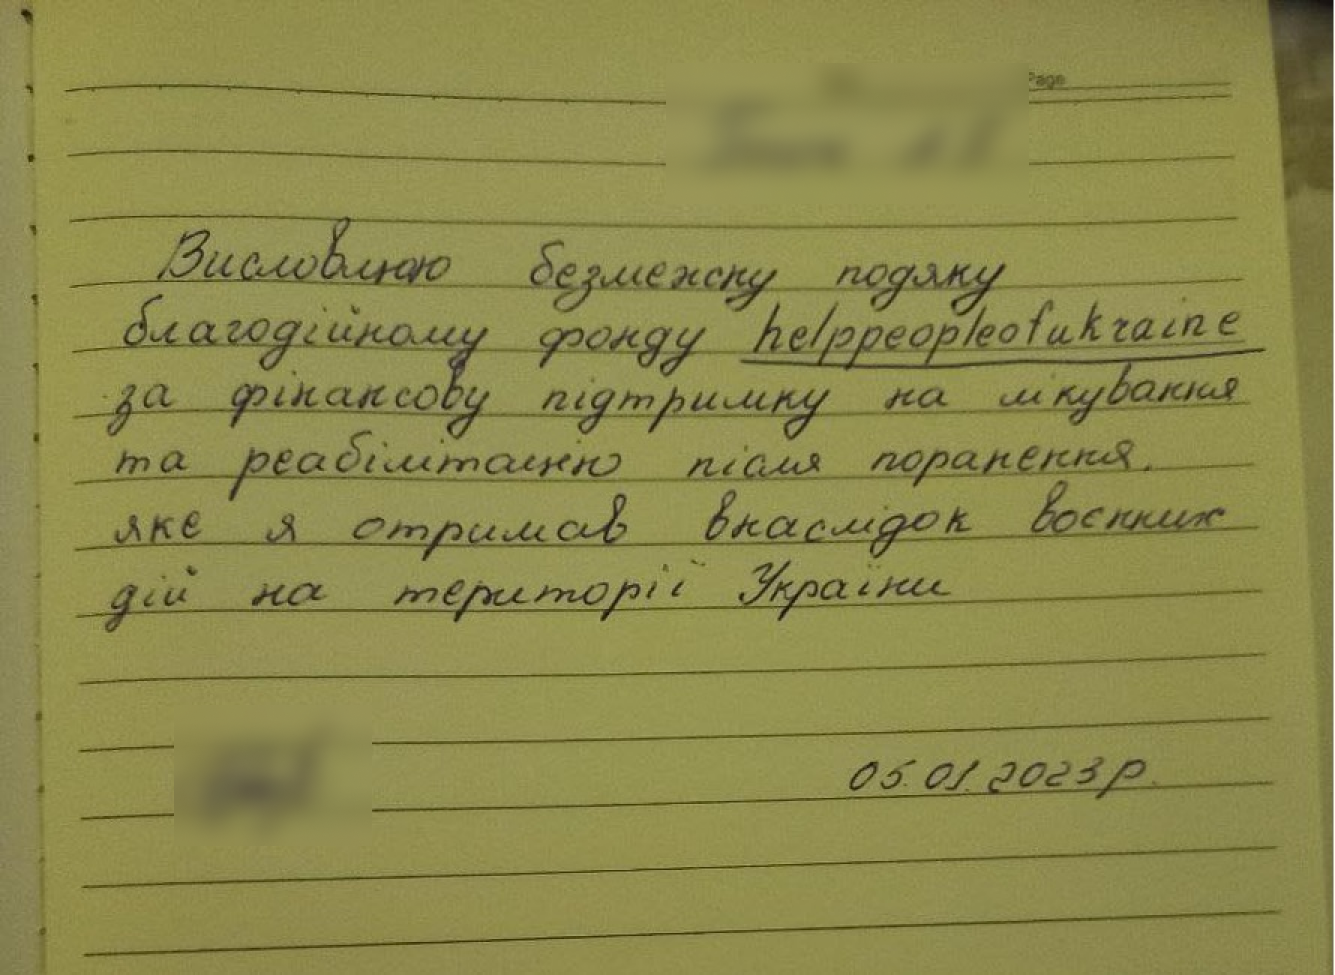 Page
Висловлюю безмежну подяку
благодійному фонду helppeopleofukraine
за фінансову підтримку на лікування
та реабілітацію після поранення.
яке я отримав внаслідок воєнних
дій на території України
05.01.2023р.